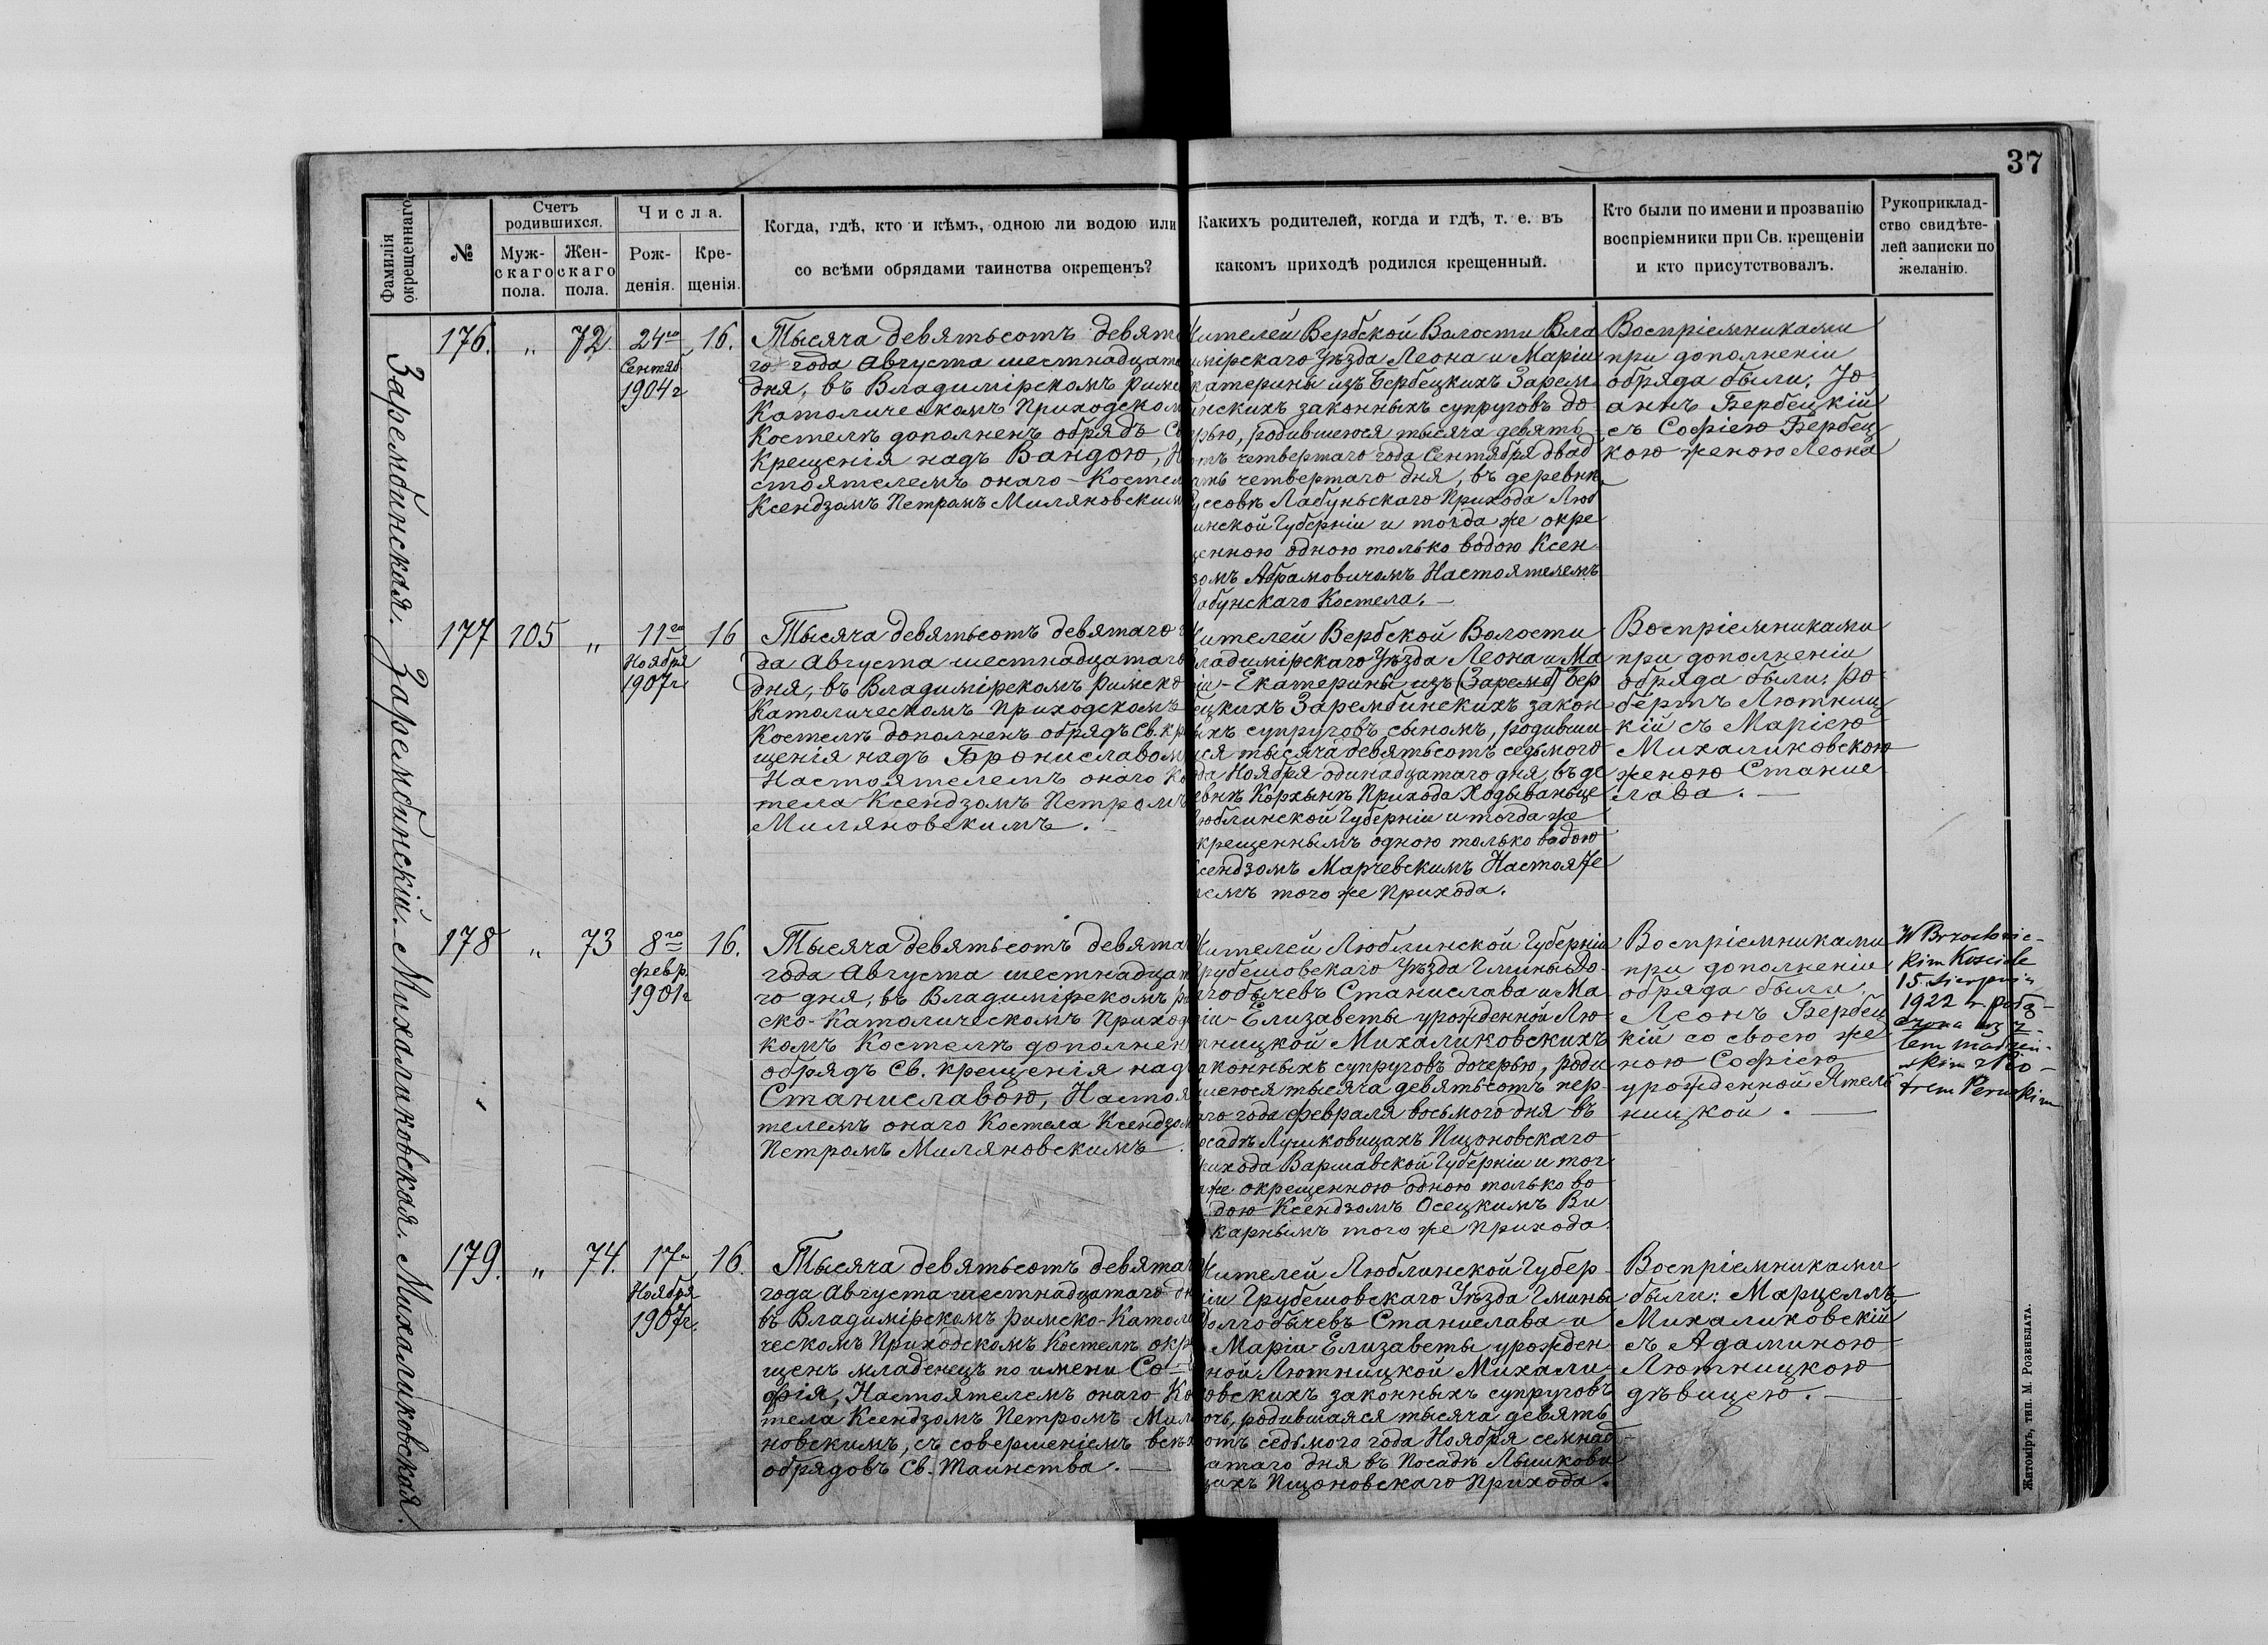 37
Фамилія окрещеннаго
№
Счетъ родившихся.
Муж-скаго пола.
Жен-скаго пола.
Числа.
Рож-денія.
Кре-щенія.
Когда, гдѣ, кто и кѣмъ, одною ли водою или
со всѣми обрядами таинства окрещенъ?
Какихъ родителей, когда и гдѣ, т. е. въ
какомъ приходѣ родился крещенный.
Кто были по имени и прозванію
воспріемники при Св. крещеніи
и кто присутствовалъ.
Рукоприклад-
ство свидѣте-
лей записки по
желанію.
Зарембинская.
176. " 72. 24го Сентяб 1904 г 16.
Тысяча девятьсотъ девято
го года Августа шестнадцато
дня, въ Владимірскомъ Римс
Католическомъ Приходском
Костелѣ дополненъ обрядъ Св
Крещенія надъ Вандою, Н
стоятелемъ онаго Костел
Ксендзомъ Петромъ Миляновским
Жителей Вербской Волости Вла
имірскаго Уѣзда Леона и Маріи
Катерины изъ Бербецкихъ Зарем
инскихъ законныхъ супруговъ до
рью, родившеюся тысяча девять
отъ четвертаго года Сентября двад
ать четвертаго дня, въ деревнѣ
уссовѣ Лабуньскаго Прихода Люб
инской Губерніи и тогда же окре
щенною одною только водою Ксен
зомъ Абрамовичомъ Настоятелемъ
Лабунскаго Костела. —
Воспріемниками
при дополненіи
обряда были: Іо
аннъ Бербецкій
съ Софіею Бербец
кою женою Леона
Зарембинскій.
177 105 " 11го Ноября 1907 г 16
Тысяча девятьсотъ девятаго г
да Августа шестнадцатаго
дня, въ Владимірскомъ Римско
Католическомъ Приходскомъ
Костелѣ дополненъ обрядъ Св. Кр
щенія надъ Брониславом
Настоятелемъ онаго Ко
тела Ксендзомъ Петромъ
Миляновскимъ. —
Жителей Вербской Волости
Владимірскаго Уѣзда Леона и Ма
іи-Екатерины изъ (Заремб) Бер
ецкихъ Зарембинскихъ закон
ыхъ супруговъ сыномъ, родивши
мся тысяча девятьсотъ седьмого
ода Ноября одинадцатаго дня, въ де
евнѣ Коркынѣ Прихода Ходываньце
Люблинской Губерніи и тогда же
крещеннымъ одною только водою
сендзомъ Марчевскимъ Настояте
лемъ того же Прихода.
Воспріемниками
при дополненіи
обряда были: Ро
бертъ Лютниц
кій съ Маріею
Михаликовскою
женою Станис
лава. —
Михаликовская.
178 " 73 8го Февр. 1901 г 16.
Тысяча девятьсотъ девята
года Августа шестнадцат
го дня, въ Владимірскомъ Ри
ско-Католическомъ Приход
комъ Костелѣ дополнен
обрядъ Св. Крещенія надъ
Станиславою, Настоя
телемъ онаго Костела Ксендзом
Петромъ Миляновскимъ.
Жителей Люблинской Губерніи
Грубешовскаго Уѣзда Гмины До
лгобычевъ Станислава и Ма
ріи-Елизаветы урожденной Лю
тницкой Михаликовскихъ
законныхъ супруговъ дочерью, роди
шеюся тысяча девятьсотъ пер
аго года Февраля восьмого дня въ
осадѣ Лушковицахъ Пщоновскаго
рихода Варшавской Губерніи и тог
а же окрещенною одною только во
дою Ксендзомъ Осецкимъ Ви
карнымъ того же Прихода
Воспріемниками
при дополненіи
обряда были:
Леонъ Бербец
кій со своею же
ною Софіею
урожденной Ятель
ницкой. —
W Brzostowic-
kim Kosciele
15. Sierpnia
1922 r.
Михаликовская.
179. " 74. 17го Ноября 1907 г. 16.
Тысяча девятьсотъ девятаг
года Августа шестнадцатаго дн
въ Владимірскомъ Римско-Католи
ческомъ Приходскомъ Костелѣ окр
щенъ младенецъ по имени Со-
фія, Настоятелемъ онаго Кос
тела Ксендзомъ Петромъ Миля
новскимъ, съ совершеніемъ всѣх
обрядовъ Св. Таинства. —
Жителей Люблинской Губер
ніи Грубешовскаго Уѣзда Гмины
Долгобычевъ Станислава и
Маріи Елизаветы урожден
ной Лютницкой Михали
овскихъ законныхъ супруговъ
очь, родившаяся тысяча девять
отъ седьмого года Ноября семнад
атаго дня въ Посадѣ Лышкови
цахъ Пщоновскаго Прихода.
Воспріемниками
были: Марцеллъ
Михаликовскій
съ Адаминою
Лютницкою
дѣвицею. —
Житоміръ, тип. М. Розенблата.